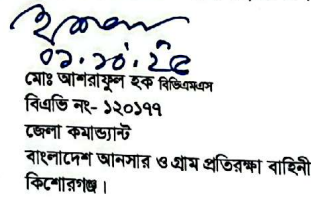 ০১.১০.২৫
মোঃ আশরাফুল হক বিভিএমএস
বিএভি নং- ১২০১৭৭
জেলা কমান্ড্যান্ট
বাংলাদেশ আনসার ও গ্রাম প্রতিরক্ষা বাহিনী
কিশোরগঞ্জ।